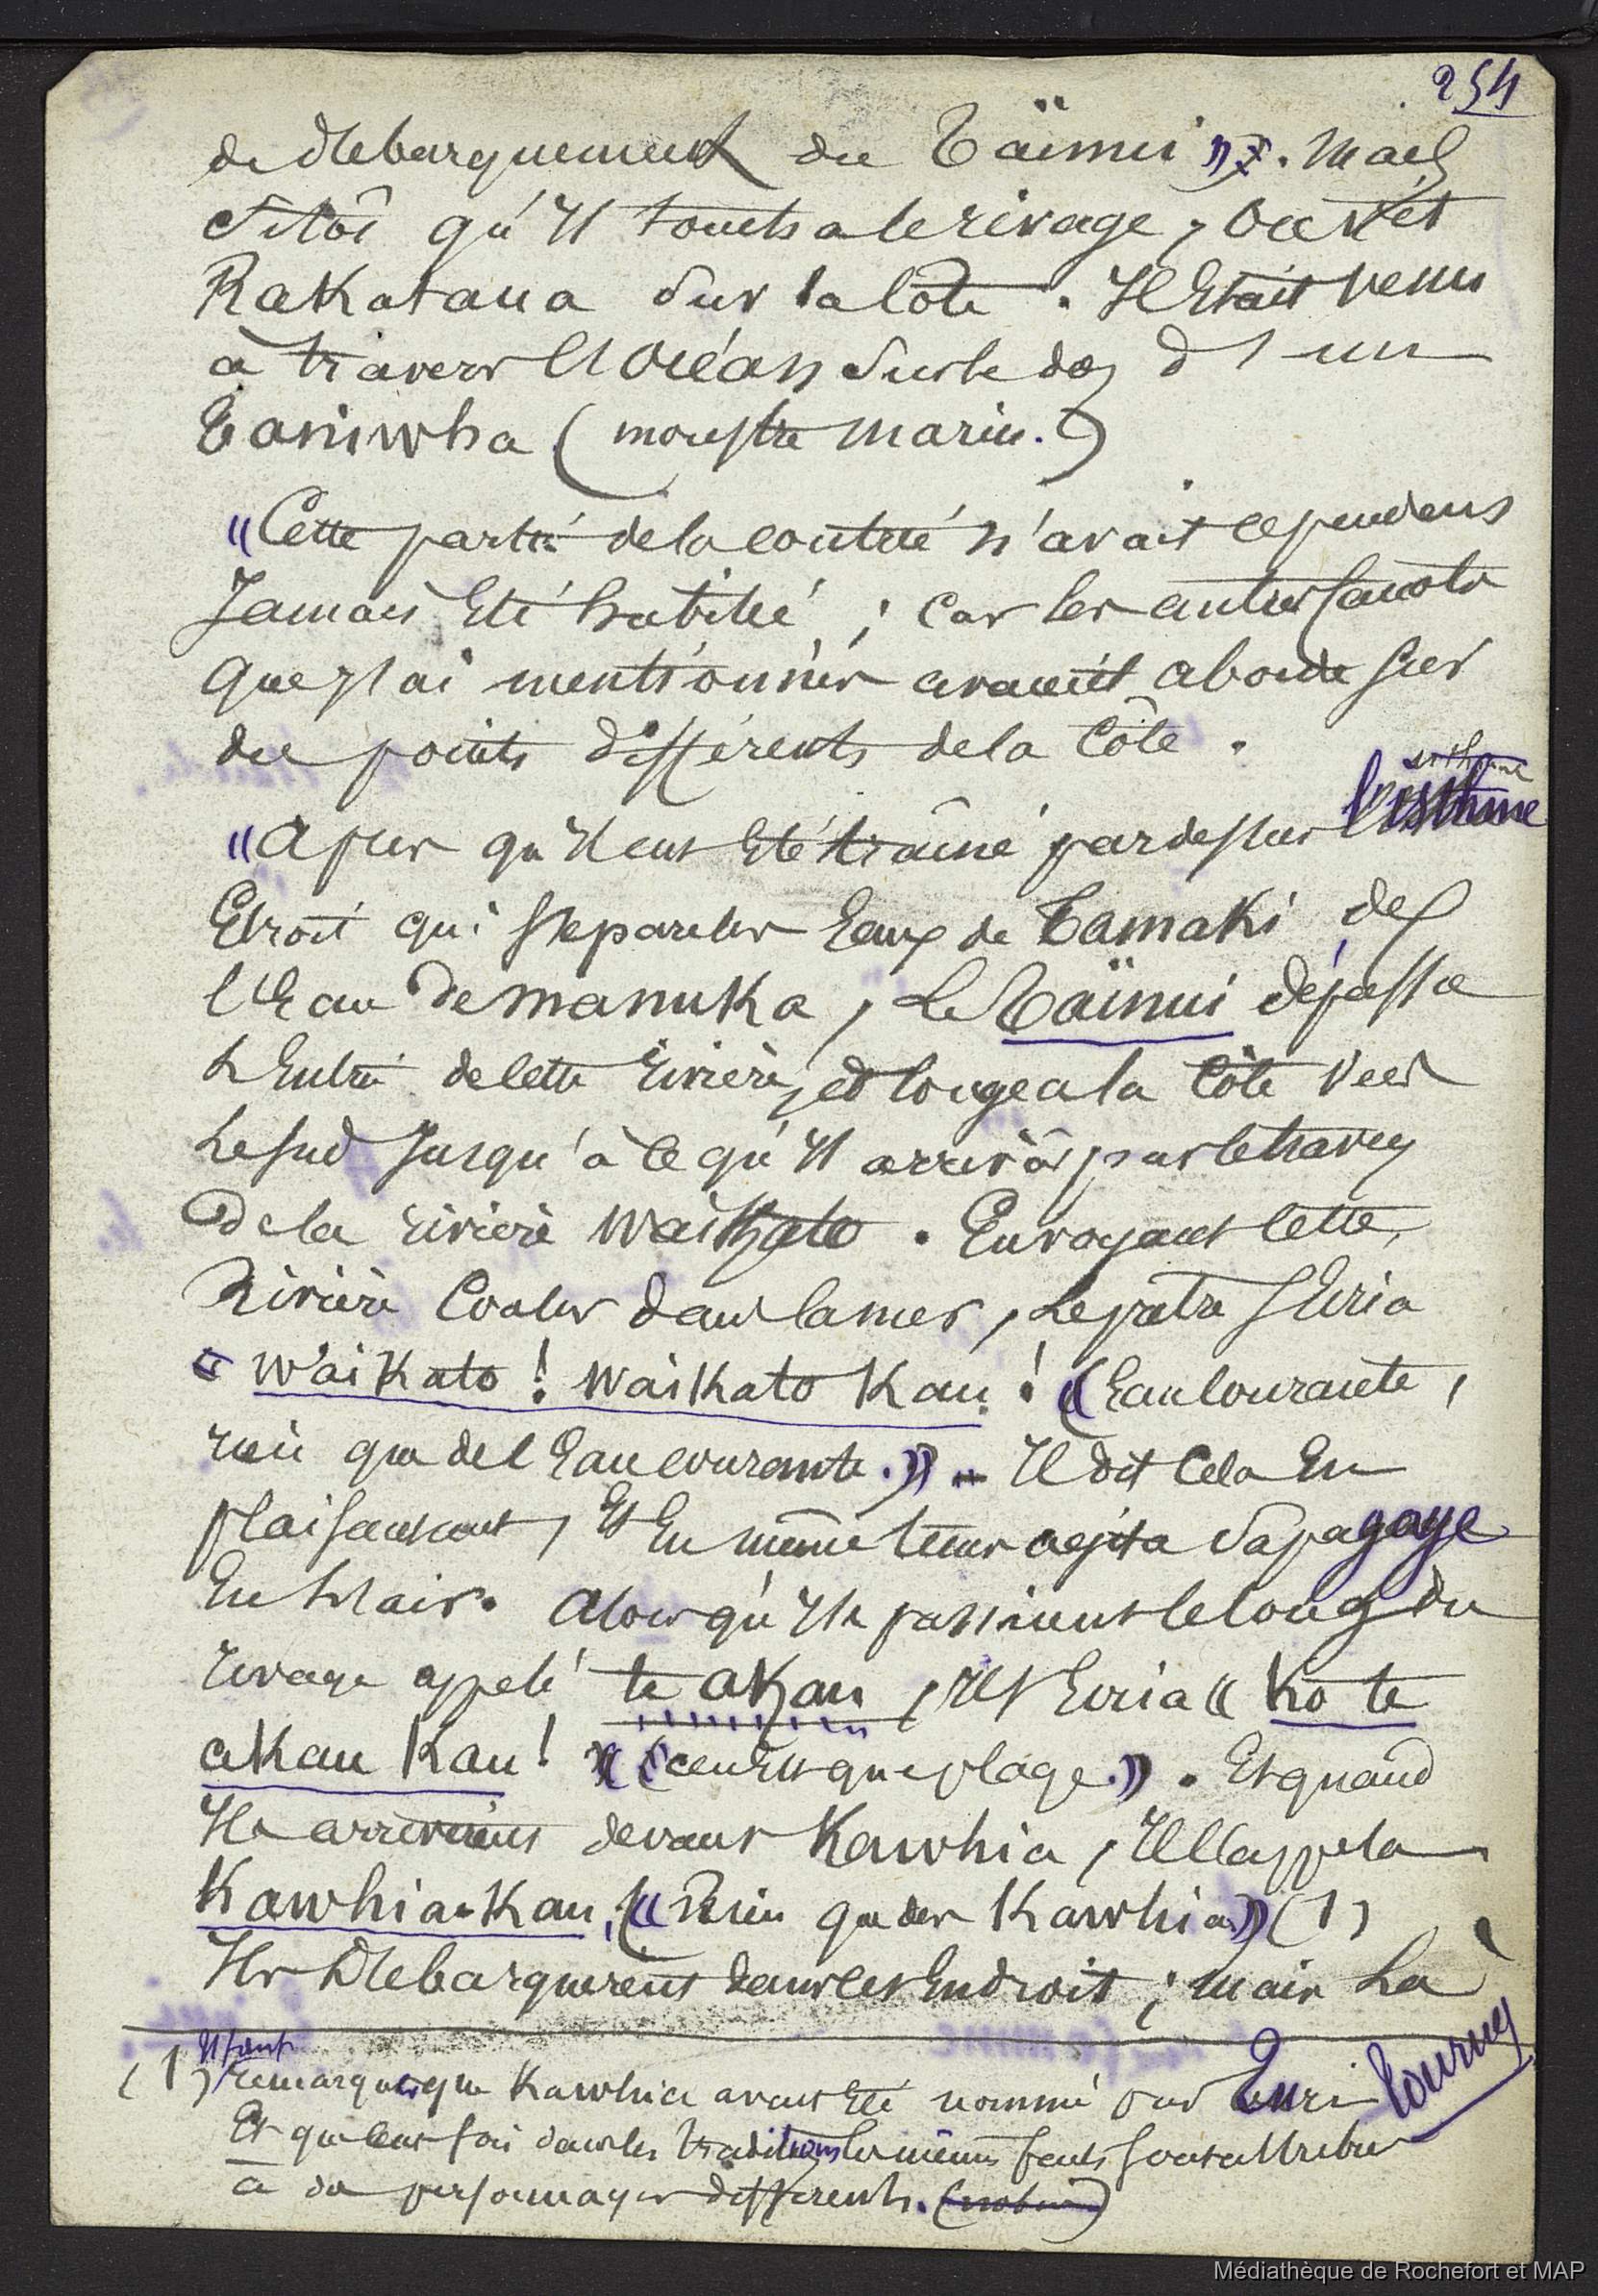 254
de débarquement du Taïnui ». Mais
sitôt qu'il toucha le rivage, on vit
Rakataua sur la côte. Il était venu
à travers l'océan sur le dos d'un
Taniwha (monstre marin.)
« Cette partie de la contrée n'avait cependant
jamais été habitée ; car les autres canots
que j'ai mentionnés avaient abordé sur
des points différents de la côte.
isthme
« Après qu'il eut été traîné par dessus l'isthme
étroit qui sépare les eaux de Tamaki de
l'eau de Manuka, le Taïnui dépassa
l'entrée de cette rivière, et longea la côte vers
le sud jusqu'à ce qu'il arrivât par le travers
de la rivière Waikato. En voyant cette
rivière couler dans la mer, le prêtre s'écria
« Waikato ! Waikato Kau ! « (Eau courante,
rien que de l'eau courante.) » – Il dit cela en
plaisantant, et en même temps agita sa pagaye
en l'air. Alors qu'ils passaient le long du
rivage appelé te akau, il s'écria « Ko te
akau Kau ! » « (ce n'est que plage.) ». Et quand
ils arrivèrent devant Kawhia, il l'appela
Kawhia-Kau, (« Rien que des Kawhia ») (1)
Ils débarquèrent dans cet endroit ; mais là
(1) Il faut remarquer que Kawhia avait été nommé par Turi
Et que bien des fois dans les traditions les mêmes faits sont attribués
à des personnages différents.
Tournez
Médiathèque de Rochefort et MAP